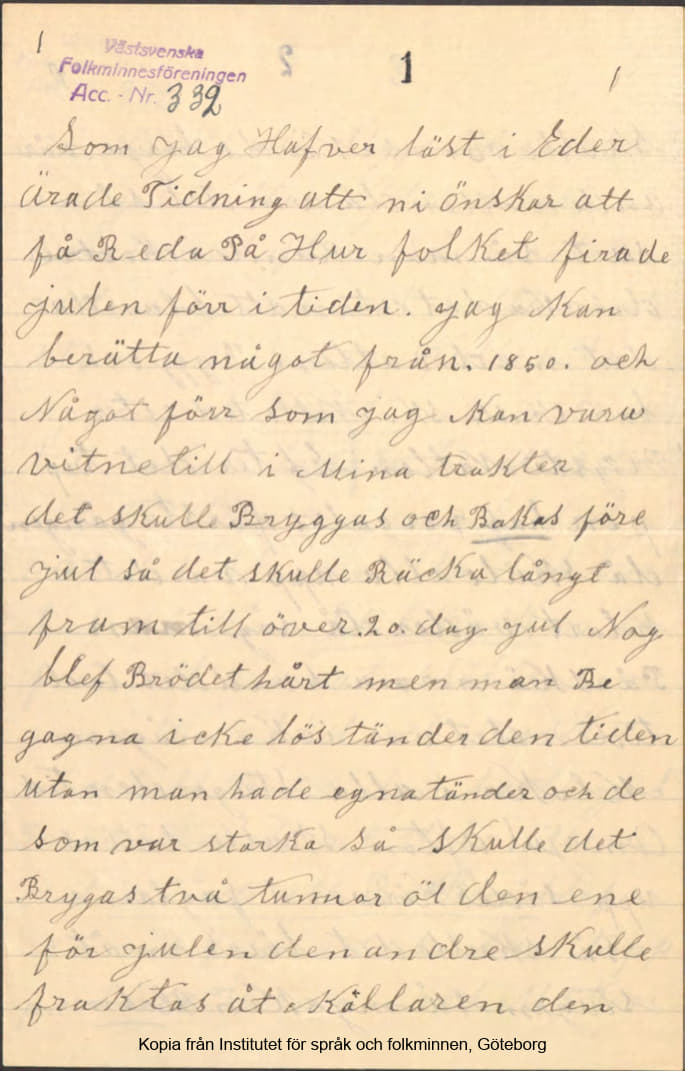 1
Västsvenska
Folkminnesföreningen
Acc. - Nr. 332
1
1
Som jag Hafver läst i Eder
Ärade Tidning att ni önskar att
få Reda På Hur folket firade
julen förr i tiden. jag Kan
berätta något från. 1850. och
Något förr som jag Kan vara
vitne till i Mina trakter
det skulle Bryggas och Bakas före
jul så det skulle Räcka långt
fram till över. 20. dag jul Nog
blef Brödet hårt men man Be
gagna icke lös tänder den tiden
utan man hade egna tänder och de
som var starka så skulle det
Brygas två tunnor öl den ene
för julen den andre skulle
fraktas åt Källaren den
Kopia från Institutet för språk och folkminnen, Göteborg